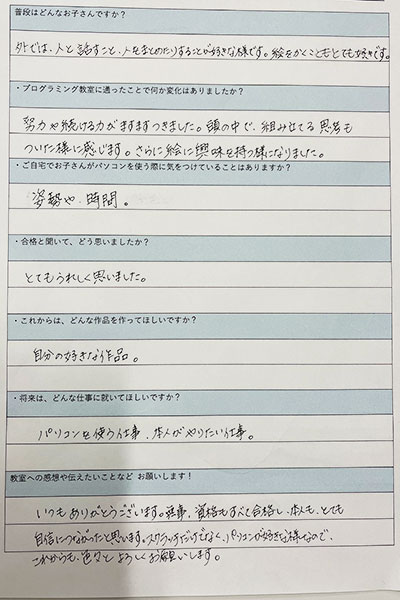 普段はどんなお子さんですか？
外では、人と話すこと、人をまとめたりすることが好きな様です。絵をかくこともとても好きです。
・プログラミング教室に通ったことで何か変化はありましたか？
努力や続ける力がますますつきました。頭の中で、組み立てる思考も
ついた様に感じます。さらに絵に興味を持つ様になりました。
・ご自宅でお子さんがパソコンを使う際に気をつけていることはありますか？
姿勢や、時間。
・合格と聞いて、どう思いましたか？
とてもうれしく思いました。
・これからは、どんな作品を作ってほしいですか？
自分の好きな作品。
・将来は、どんな仕事に就いてほしいですか？
パソコンを使う仕事、本人がやりたい仕事。
教室への感想や伝えたいことなど お願いします！
いつもありがとうございます。無事、資格もすべて合格し、本人も、とても
自信につながったと思います。スクラッチだけでなく、パソコンが好きな様なので、
これからも、色々と よろしくお願いします。